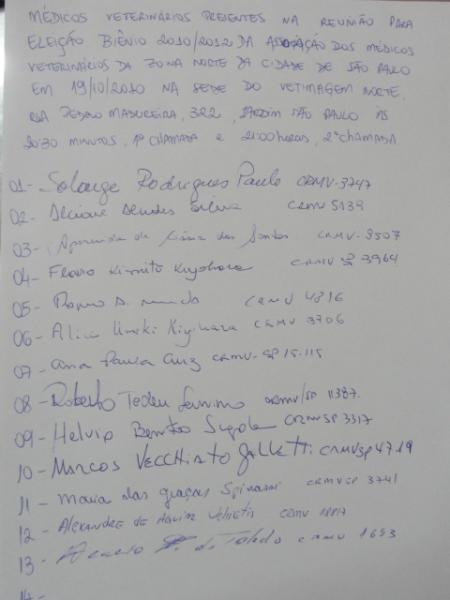 MÉDICOS VETERINÁRIOS PRESENTES NA REUNIÃO PARA
ELEIÇÃO BIÊNIO 2010/2012 DA ASSOCIAÇÃO DOS MÉDICOS
VETERINÁRIOS DA ZONA NORTE DA CIDADE DE SÃO PAULO
EM 19/10/2010 NA SEDE DO VETIMAGEM NORTE.
RUA PEDRO MADUREIRA, 322, JARDIM SÃO PAULO ÀS
20:30 MINUTOS, 1ª CHAMADA e 21:00 horas, 2ª CHAMADA
01- Solange Rodrigues Paulo CRMV-3747
02- CRMV 5139
03- dos Santos CRMV-3507
04- Flavio Kiyohara CRMV SP 3964
05- CRMV 4816
06- Alice CRMV 3706
07- Ana Paula CRMV-SP 15.115
08- Roberto CRMV/SP 11387.
09- Helvio CRMVSP 3317
10- Marcos VECCHIATO CRMVSP 4719
11- Maria das Graças CRMVSP 3741
12- Alexandre de CRMV
13- de Toledo CRMV 1653
14-